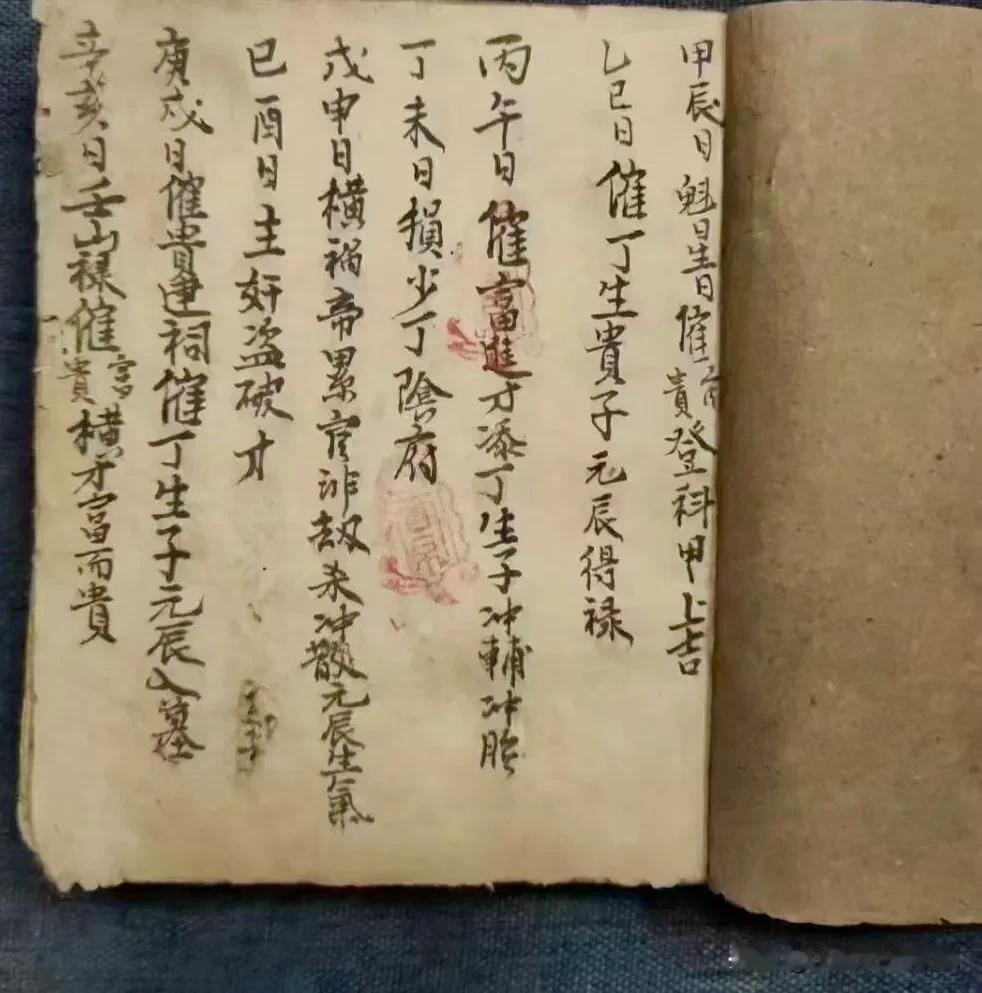 甲辰日魁星日催官貴登科甲上吉
乙巳日催丁生貴子元辰得祿
丙午日催富進才添丁生子冲輔冲胎
丁未日損少丁陰府
戊申日橫禍帝累官非劫未冲散元辰生氣
巳酉日主奸盗破才
庚戌日催貴建祠催丁生子元辰入墓
辛亥日壬山祿催富貴橫才富而貴